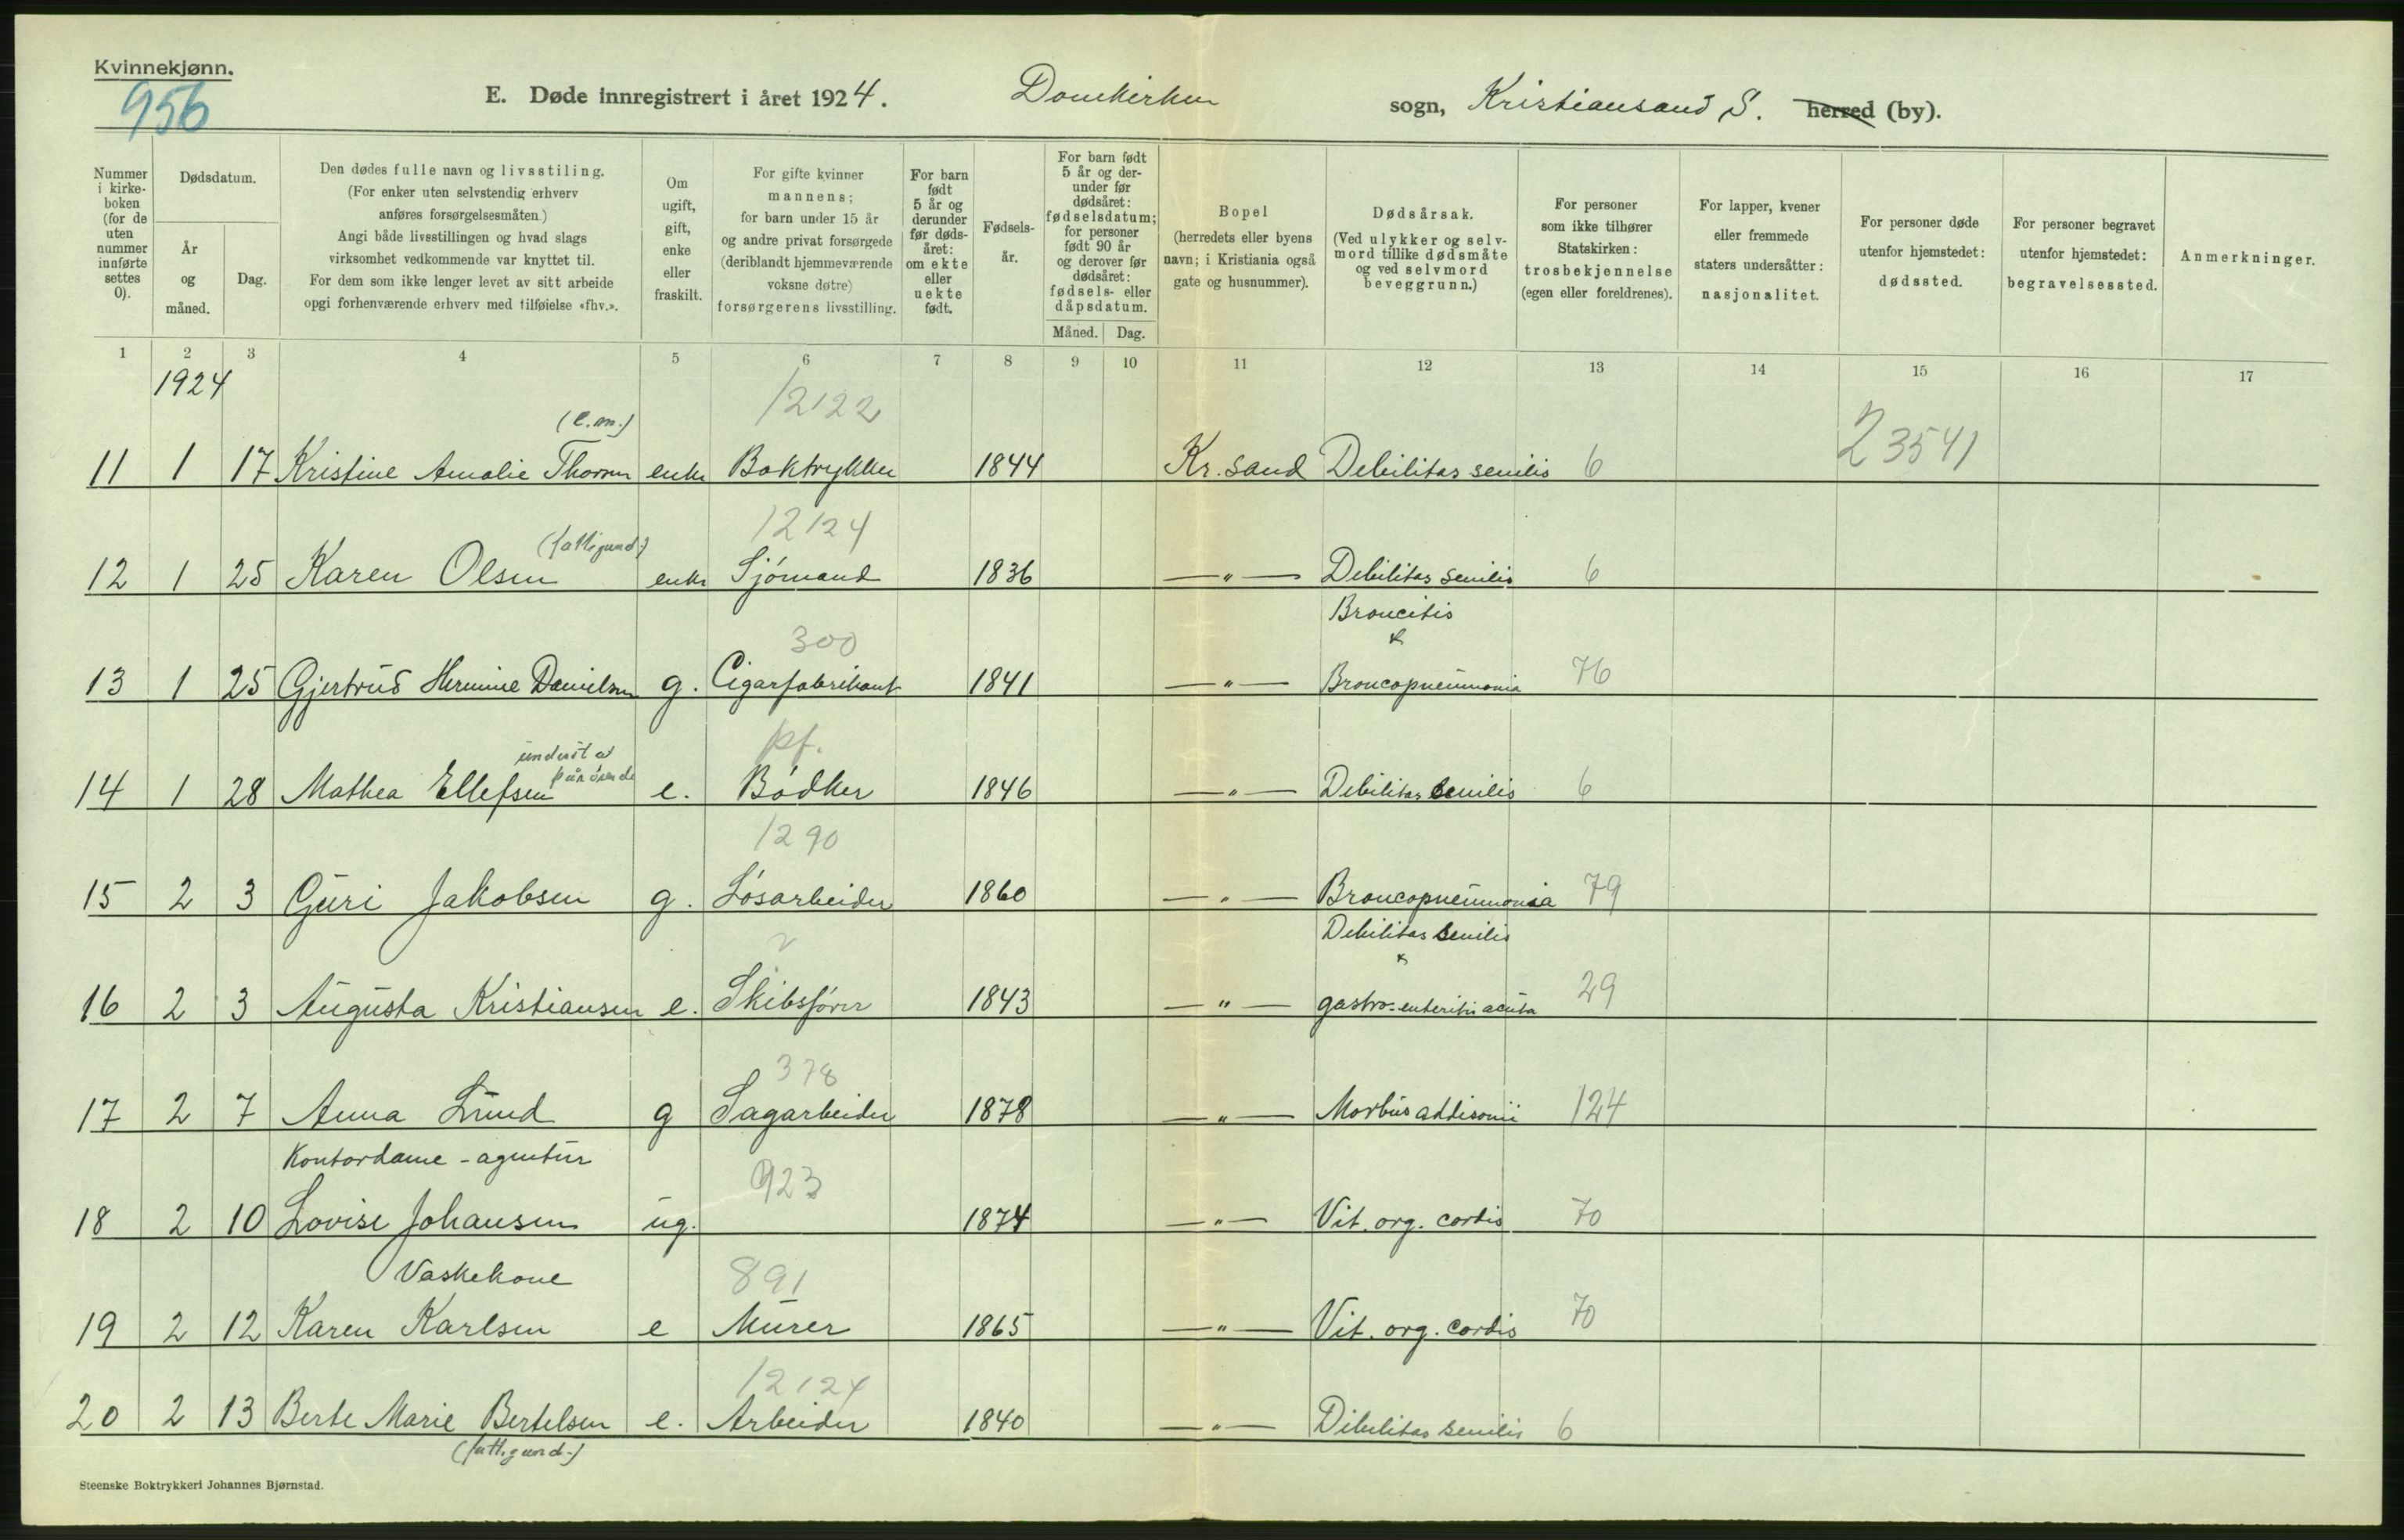 Kvinnekjønn.
956
E. Døde innregistrert i året 1924. Domkirken sogn, Kristiansand S. herred (by).
Nummer i kirke-boken (for de uten nummer innførte settes 0).
Dødsdatum.
År og måned.
Dag.
Den dødes fulle navn og livsstiling.
(For enker uten selvstendig erhverv
anføres forsørgelsesmåten.)
Angi både livsstillingen og hvad slags
virksomhet vedkommende var knyttet til.
For dem som ikke lenger levet av sitt arbeide
opgi forhenværende erhverv med tilføielse «fhv.».
Om ugift, gift, enke eller fraskilt.
For gifte kvinner
mannens;
for barn under 15 år
og andre privat forsørgede
(deriblandt hjemmeværende
voksne døtre)
forsørgerens livsstilling.
For barn født 5 år og derunder før døds-året: om ekte eller uekte født.
Fødsels-år.
For barn født 5 år og der-under før dødsåret: fødselsdatum; for personer født 90 år og derover før dødsåret: fødsels- eller dåpsdatum.
Måned. Dag.
Bopel
(herredets eller byens
navn; i Kristiania også
gate og husnummer).
Dødsårsak.
(Ved ulykker og selv-
mord tillike dødsmåte
og ved selvmord
beveggrunn.)
For personer
som ikke tilhører
Statskirken:
trosbekjennelse
(egen eller foreldrenes).
For lapper, kvener
eller fremmede
staters undersåtter:
nasjonalitet.
For personer døde
utenfor hjemstedet:
dødssted.
For personer begravet
utenfor hjemstedet:
begravelsessted.
Anmerkninger.
1 2 3 4 5 6 7 8 9 10 11 12 13 14 15 16 17
1924
(e.m.) 12122
11 1 17 Kristine Amalie Thorsen enke Boktrykker 1844 Kr.sand Debilitas senilis 6 23541
(fattigund.) 12124
12 1 25 Karen Olsen enke Sjømand 1836 —"— Debilitas senilis 6
300 Broncitis &
13 1 25 Gjertrud Hermine Danielsen g. Cigarfabrikant 1841 —"— Broncopneumonia 76
underst. av pårørende pf.
14 1 28 Mathea Ellefsen e. Bødker 1846 —"— Debilitas senilis 6
1290
15 2 3 Guri Jakobsen g. Løsarbeider 1860 —"— Broncopneumonia 79
2 Debilitas senilis &
16 2 3 Augusta Kristiansen e. Skibsfører 1843 —"— gastro-enteritis acuta 29
378
17 2 7 Anna Lund g Sagarbeider 1878 —"— Morbus addisonii 124
Kontordame - agentur 923
18 2 10 Lovise Johansen ug. 1874 —"— Vit. org. cordis 70
Vaskekone 891
19 2 12 Karen Karlsen e Murer 1865 —"— Vit. org. cordis 70
12124
20 2 13 Berte Marie Bertelsen e. Arbeider 1840 —"— Dibilitas senilis 6
(fattigund.)
Steenske Boktrykkeri Johannes Bjørnstad.